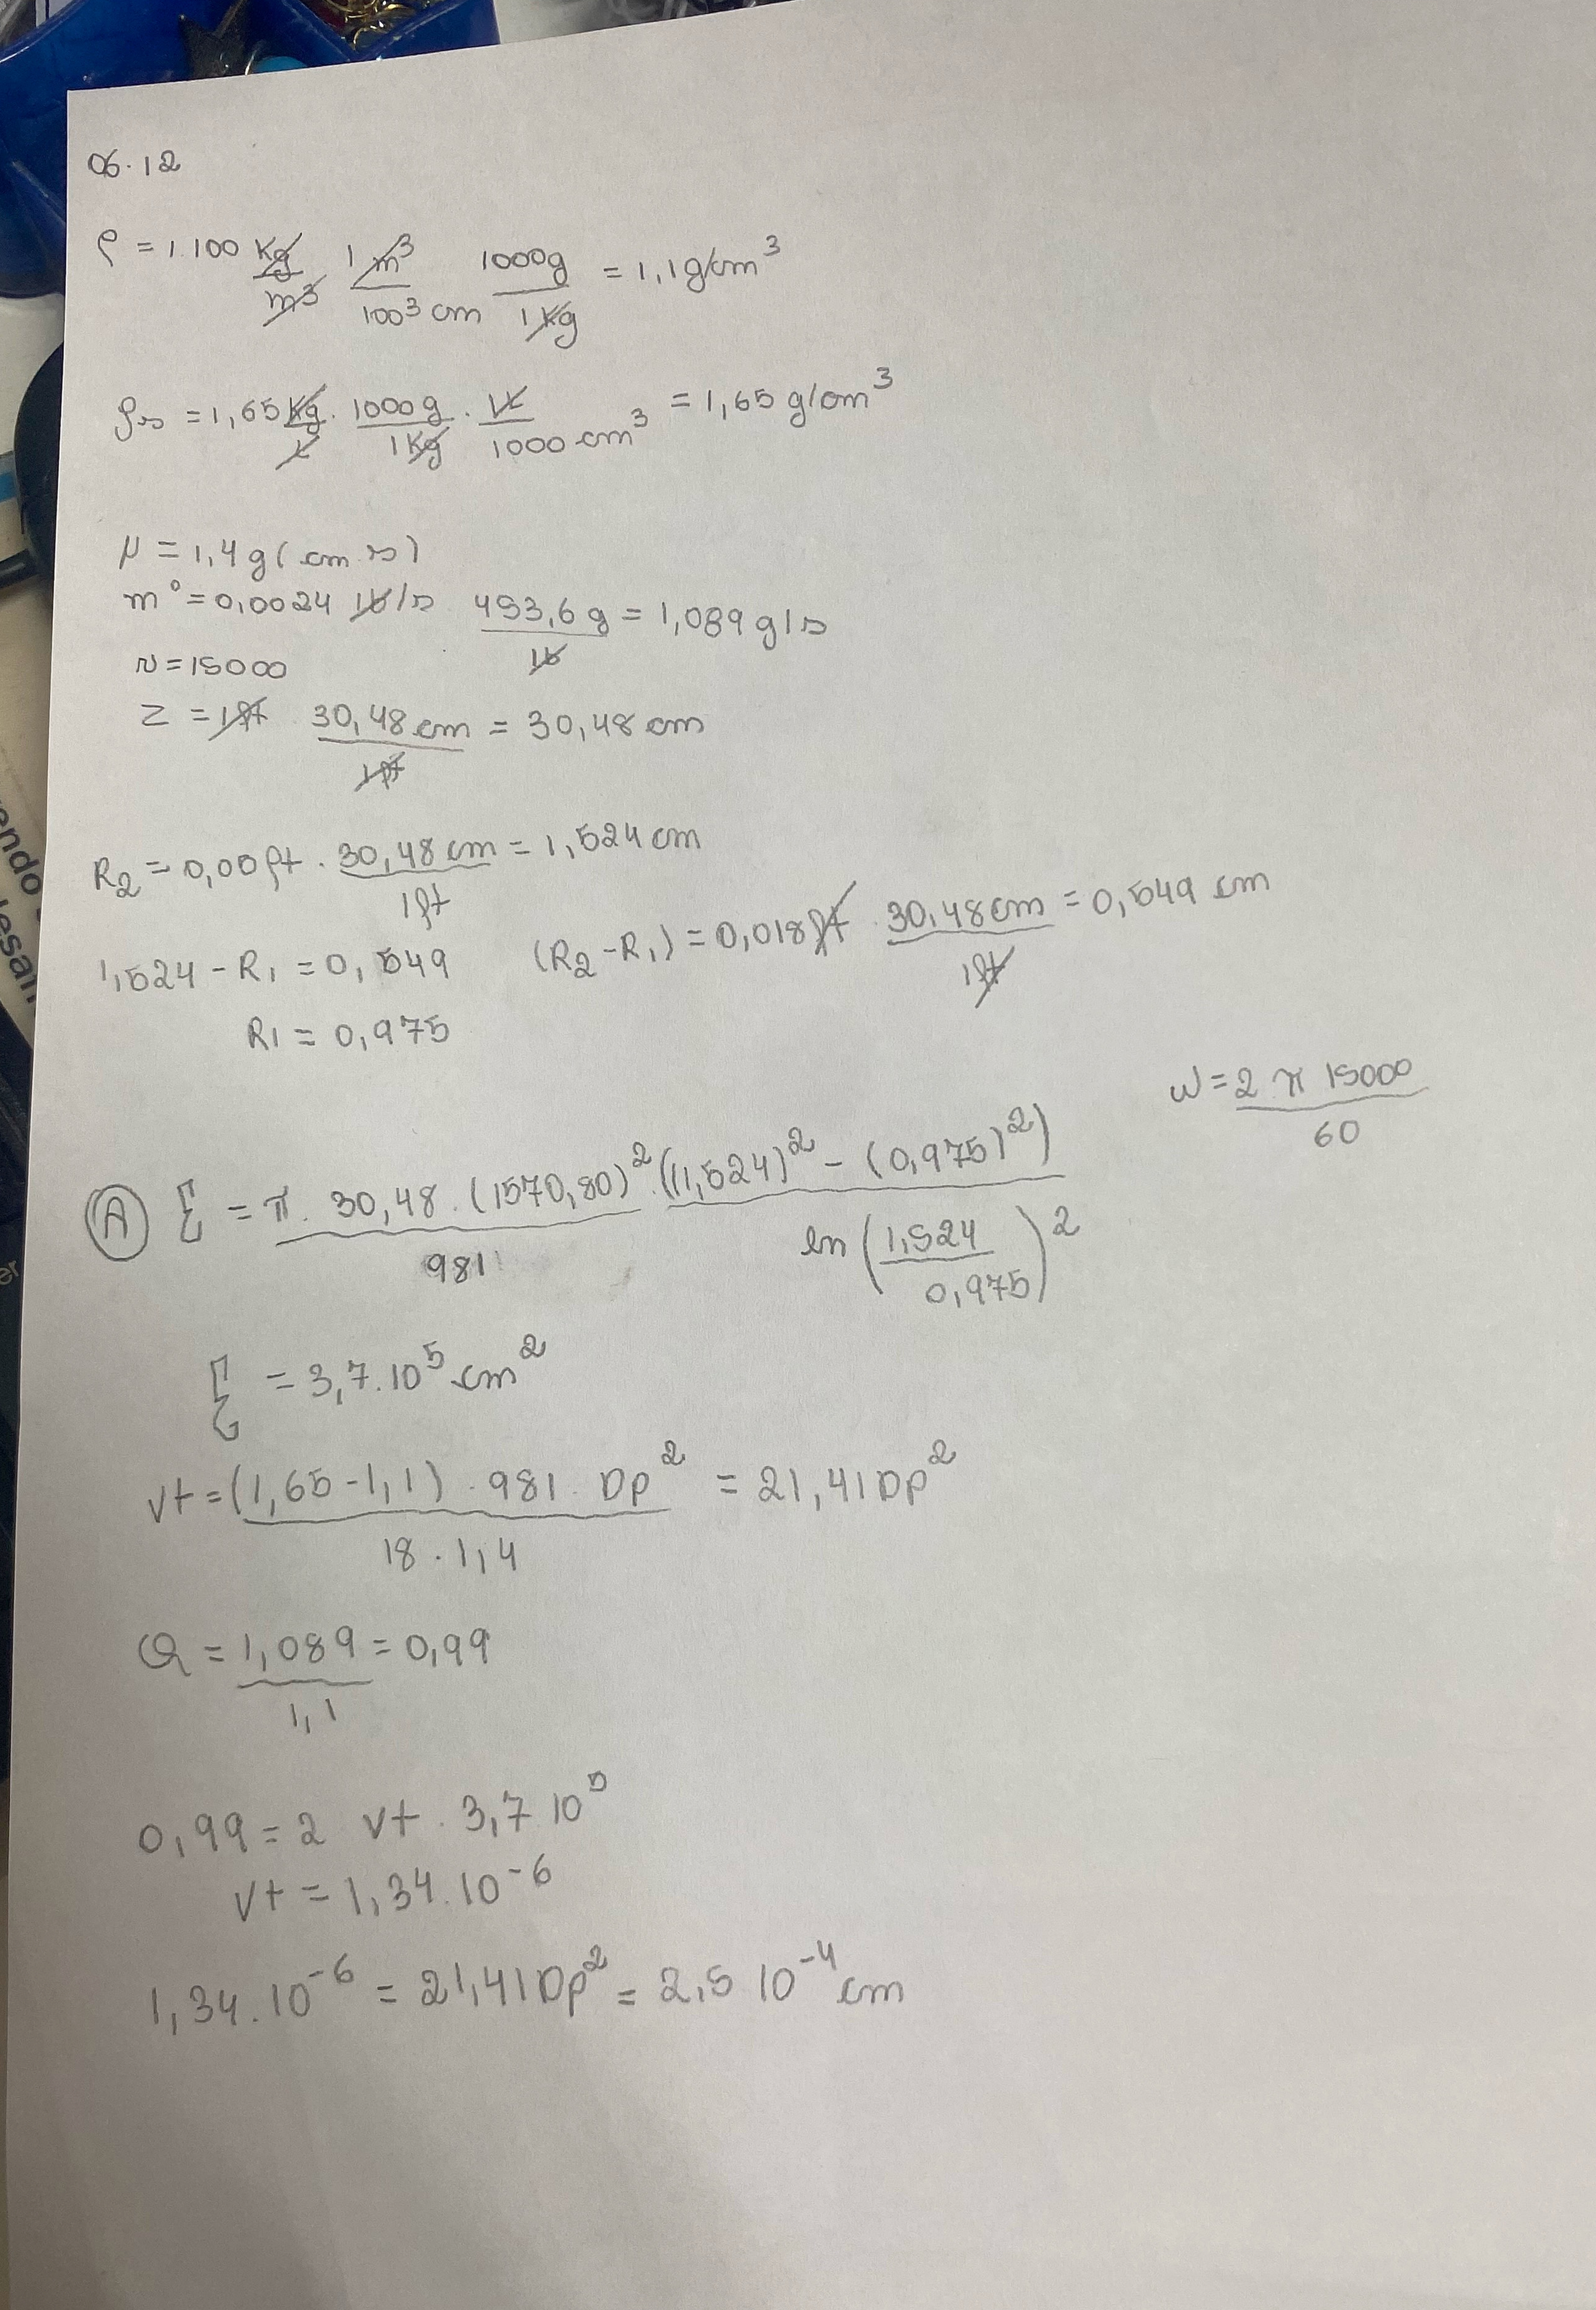 06.12
ρ = 1.100 kg/m³ 1 m³/100³ cm 1000g/1kg = 1,1 g/cm³
ρs = 1,65 kg/L . 1000g/1kg . 1L/1000 cm³ = 1,65 g/cm³
μ = 1,4 g(cm.s)
m° = 0,0024 lb/s 453,6 g/lb = 1,089 g/s
N = 15000
Z = 1ft 30,48 cm/1ft = 30,48 cm
R2 = 0,00ft . 30,48 cm/1ft = 1,524 cm
1,524 - R1 = 0,549 (R2 - R1) = 0,018ft . 30,48cm/1ft = 0,549 cm
R1 = 0,975
ω = 2 π 15000/60
A Σ = π. 30,48. (1570,80)²/981 . ((1,524)² - (0,975)²)/ln(1,524/0,975)²
Σ = 3,7.10⁵ cm²
vt = (1,65-1,1) . 981. Dp²/18 . 1,4 = 21,41Dp²
Q = 1,089/1,1 = 0,99
0,99 = 2 vt . 3,7 10⁵
vt = 1,34.10⁻⁶
1,34.10⁻⁶ = 21,41Dp² = 2,5 10⁻⁴ cm
endo
esan
er